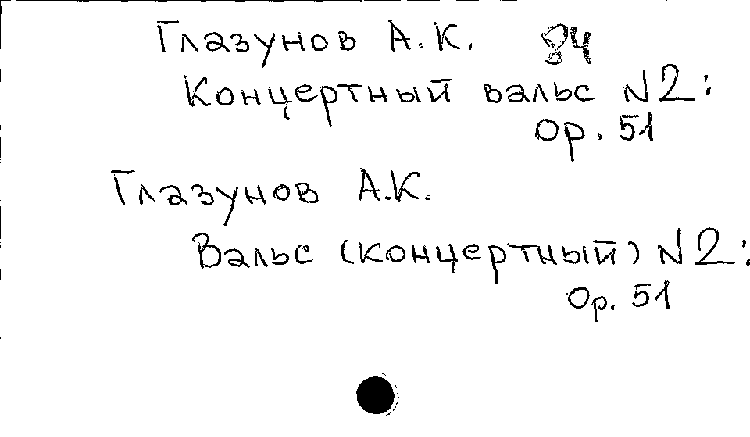 Глазунов А.К. 84
Концертный вальс N2:
Op. 51
Глазунов А.К.
Вальс (концертный) N2:
Op. 51